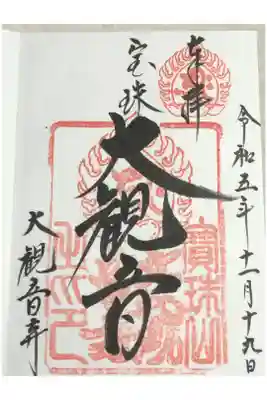 令和五年十一月十九日
奉拝
宝珠
大観音
大観音寺
寶珠山